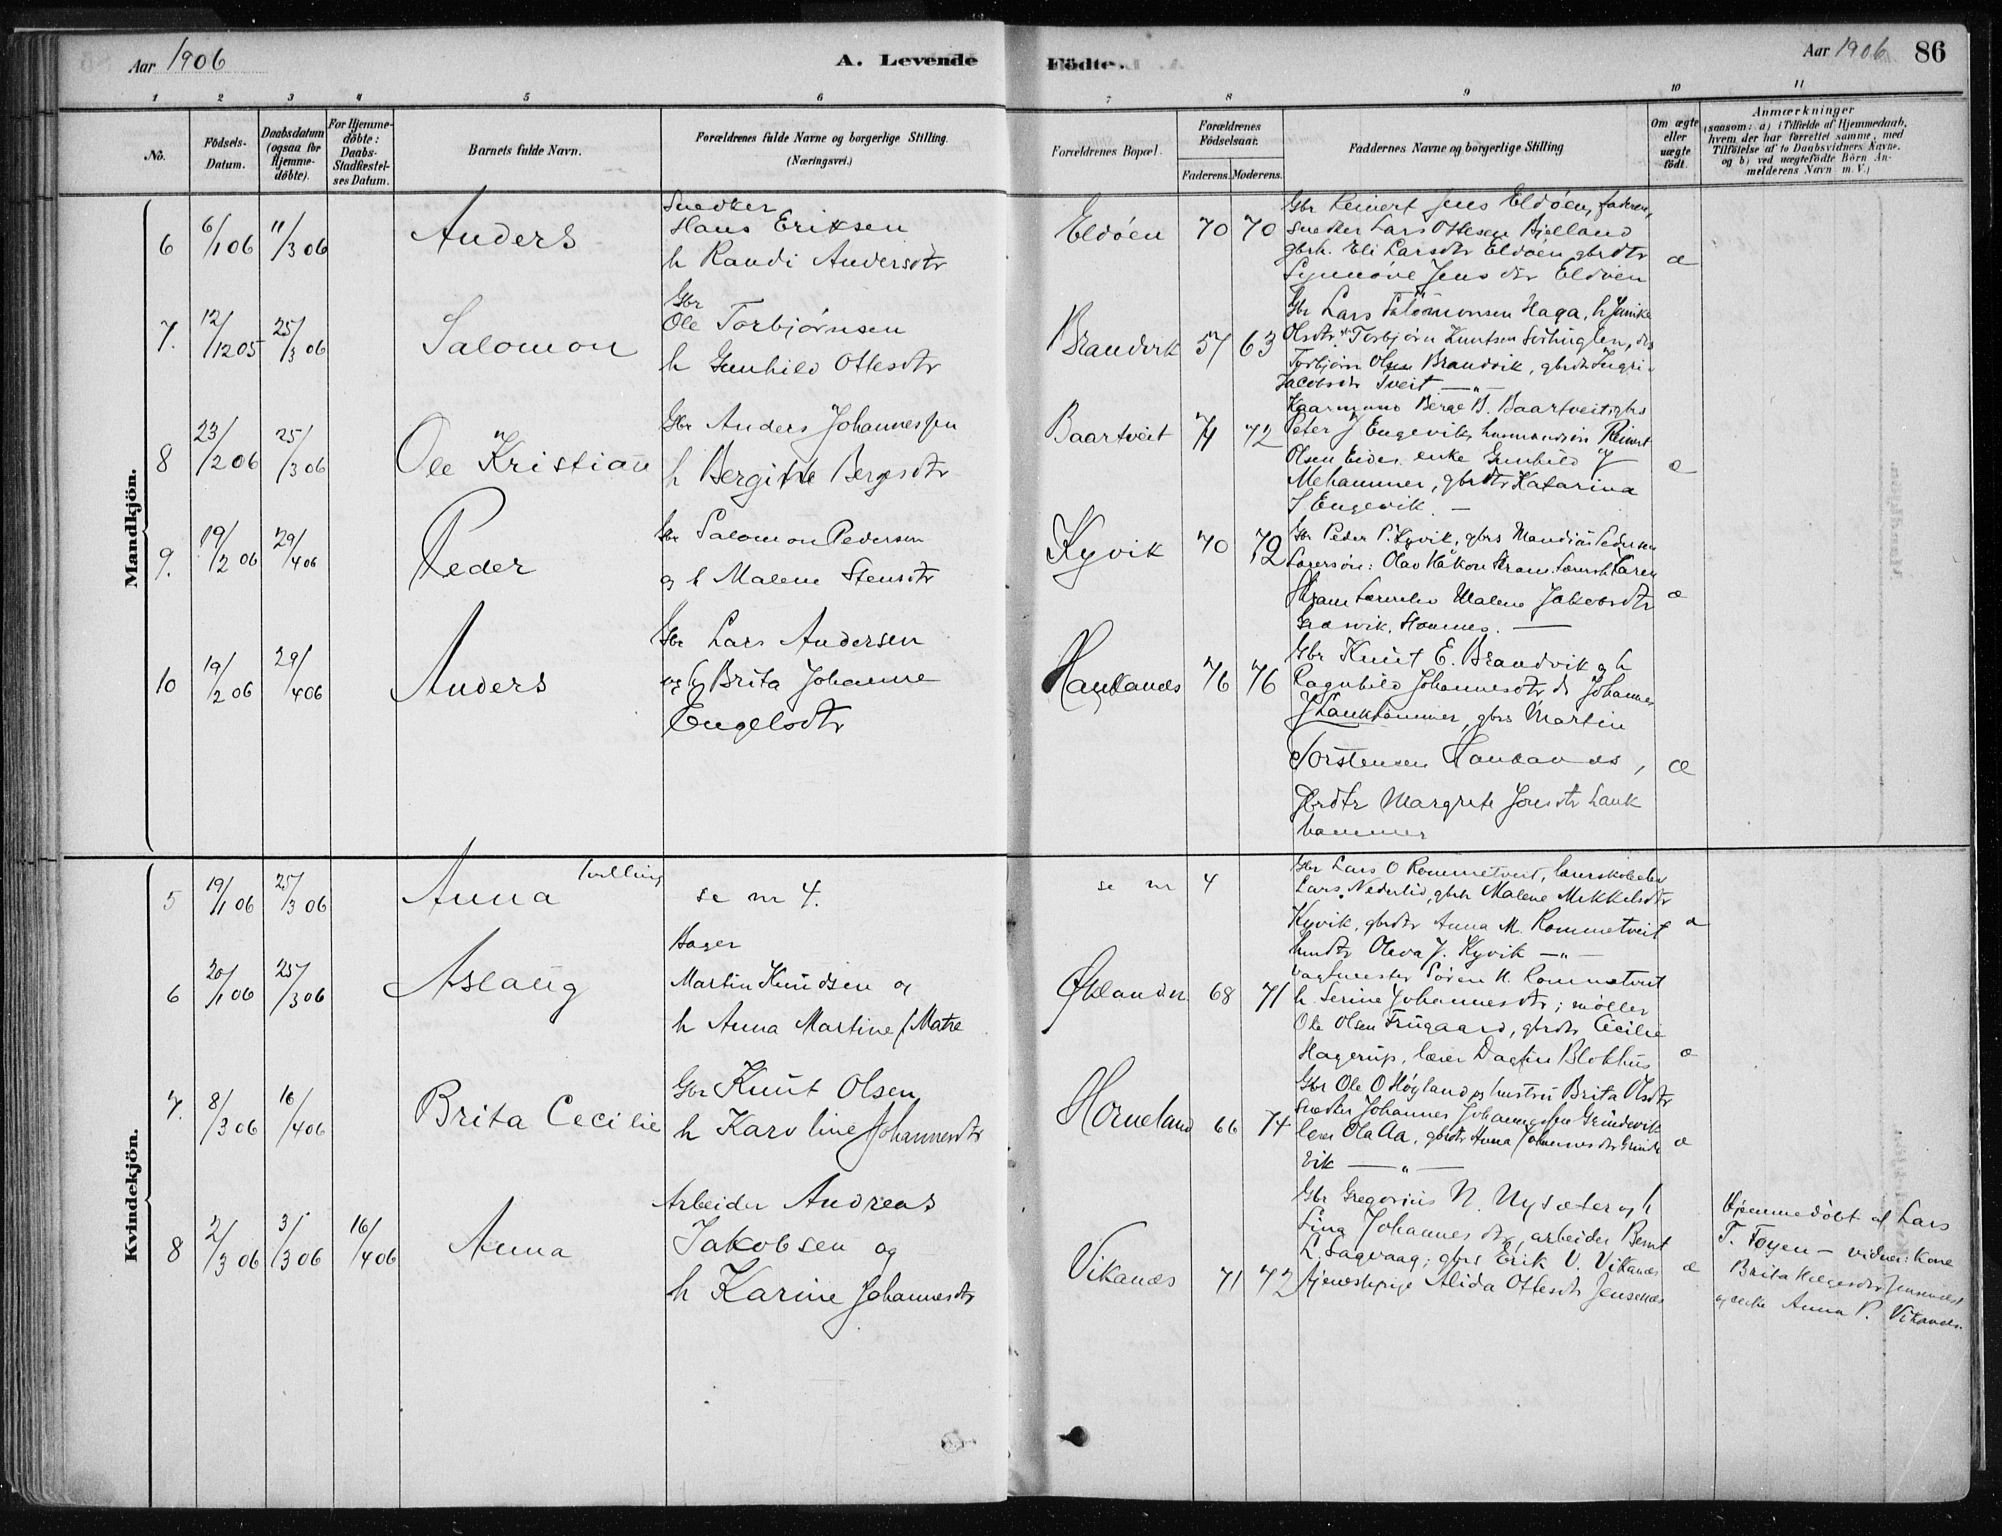 Aar 1906
A. Levende
Födte.
Aar 1906
86
1 2 3 4 5 6 7 8 9 10 11
No.
Födsels-Datum.
Daabsdatum (ogsaa for Hjemme-döbte).
For Hjemme-döbte: Daabs-Stadfæstel-ses Datum.
Barnets fulde Navn.
Forældrenes fulde Navne og borgerlige Stilling. (Næringsvei.)
Forældrenes Bopæl.
Forældrenes Födselsaar.
Faderens. Moderens.
Faddernes Navne og borgerlige Stilling
Om ægte eller uægte födt.
Anmærkninger
(saasom: a) i Tilfælde af Hjemmedaab, hvem der har forrettet samme, med Tilföielse af to Daabsvidners Navne. og b) ved uægtefödte Börn An-melderens Navn m. V.)
Mandkjön.
6 6/1 06 11/3 06 Anders
Snedker
Hans Eriksen
h Randi Andersdtr
Eldöen 70 70
Gbr Reinert Jens Eldöen, faderen,
snedker Lars Ottesen Bjelland
gbrh. Eli Larsdtr Eldöen gbrdtr
Synnöve Jens dtr Eldöen
æ
7. 12/12 05 25/3 06 Salomon
Gbr
Ole Torbjörnsen
h Gunhild Ottesdtr
Brandvik 57 63
Gbr Lars Salomonsen Haga, h Jænike
Olsdtr. Torbjörn Knutsen Sörhuglen, do
Torbjörn Olsen Brandvik, gbrdtr Ingri
Jacobsdtr Tveit — " —
8 23/2 06 25/3 06 Ole Kristian
Gbr Anders Johannessen
h Bergitte Bergesdtr
Baartveit 71 72
Kaarmand Berge B. Baartveit, gbrs
Peter J Engevik, husmandssön Reinert
Olsen Eide, enke Gunhild J
Mehammer, gbrdtr Katarina
J Engevik. —
æ
9. 19/2 06 29/4 06 Peder
Gbr Salomon Pedersen
og h Malene Stensdtr
Kyvik 70 72
Gbr Peder P. Kyvik, gbrs Mandius Pedersen
Lærersön: Olav Håkon Hram
Hram Malene Jakobsdtr
æ
10 19/2 06 29/4 06 Anders
Gbr Lars Andersen
og h Brita Johanne
Engelsdtr
Haukanæs 76 76
Gbr Knut E. Brandvik og h
Ragnhild Johannesdtr ds Johannes
J Lankhammer, gbrs Martin
Torstensen Haukanæs,
Gbrdtr Margrete Jonsdtr Lank
hammer
æ
Kvindekjön.
5 19/1 06 25/3 06 Anna tvilling
se nr 4.
se nr 4
Gbr Lars O Rommetveit, lærerskoleelev
Lars Nederlid, gbrh Malene Mikkelsdtr
Kyvik, gbrdtr Anna M. Rommetveit
husdtr Oleva J. Kyvik — " —
æ
6 20/1 06 25/3 06 Aslaug
Bager
Martin Knudsen og
h Anna Martine J Matre
Öklandsn 68 71
Vagtmester Sören K. Rommetveit
h. Serine Johannesdtr; möller
Ole Olsen Frugaard, gbrdtr Cecilie
Hagerup, lærer Dagfin Blokhus
æ
7. 8/3 06 16/4 06 Brita Cecilie
Gbr Knut Olsen
h Karoline Johannesdtr
Horneland 66 74
Gbr Ole O Höyland og hustru Brita Olsdtr
snedker Johannes Johannessen Grindevik
lærer Ola Aa, gbrdtr Anna Johannesdtr Grinde
vik — " —
æ
8 2/3 06 3/3 06 16/4 06 Anna
Arbeider Andreas
Jakobsen og
h Karine Johannesdtr
Vikanæs 71 72
Gbr Gregorius N. Nysæter og h
Lina Johannes dtr, arbeider Bernt
L. Sagvaag; gbrs Erik V. Vikanæs
tjenestepige Alida Ottesdtr Jensanæs
æ
Hjemmedöbt af Lars
T. Föyen — vidner: Kone
Brita Helgesdtr Jensanæs
og enke Anna P. Vikanæs.